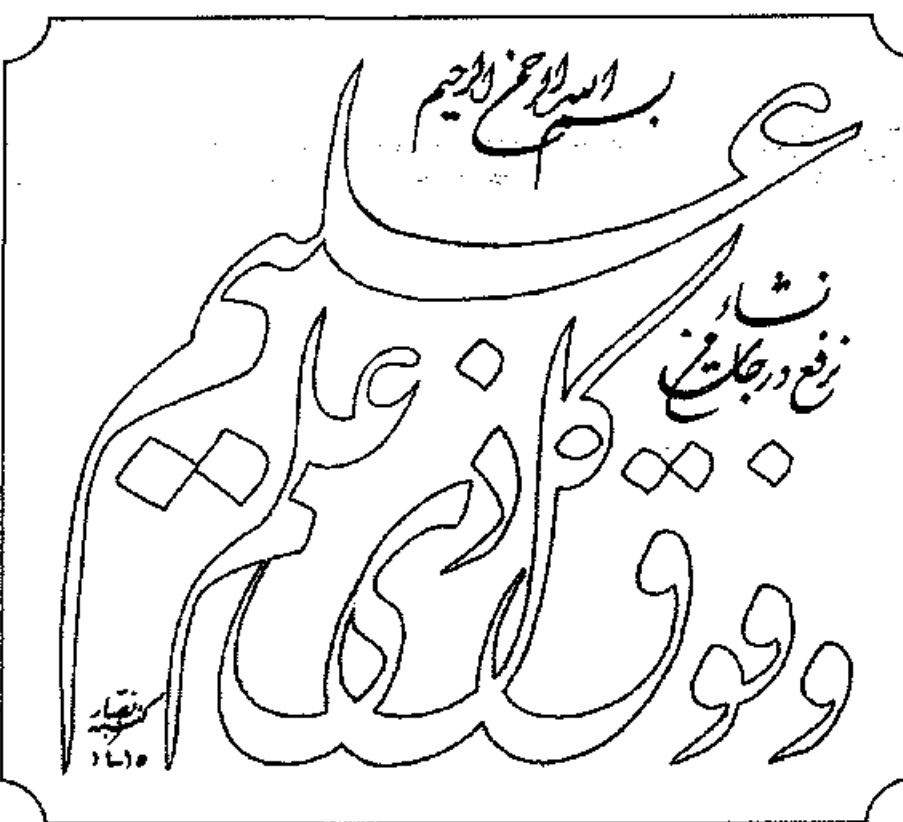 بسم الله الرحمن الرحیم
نرفع درجات من
نشاء
وفوق کل ذی علم
علیم